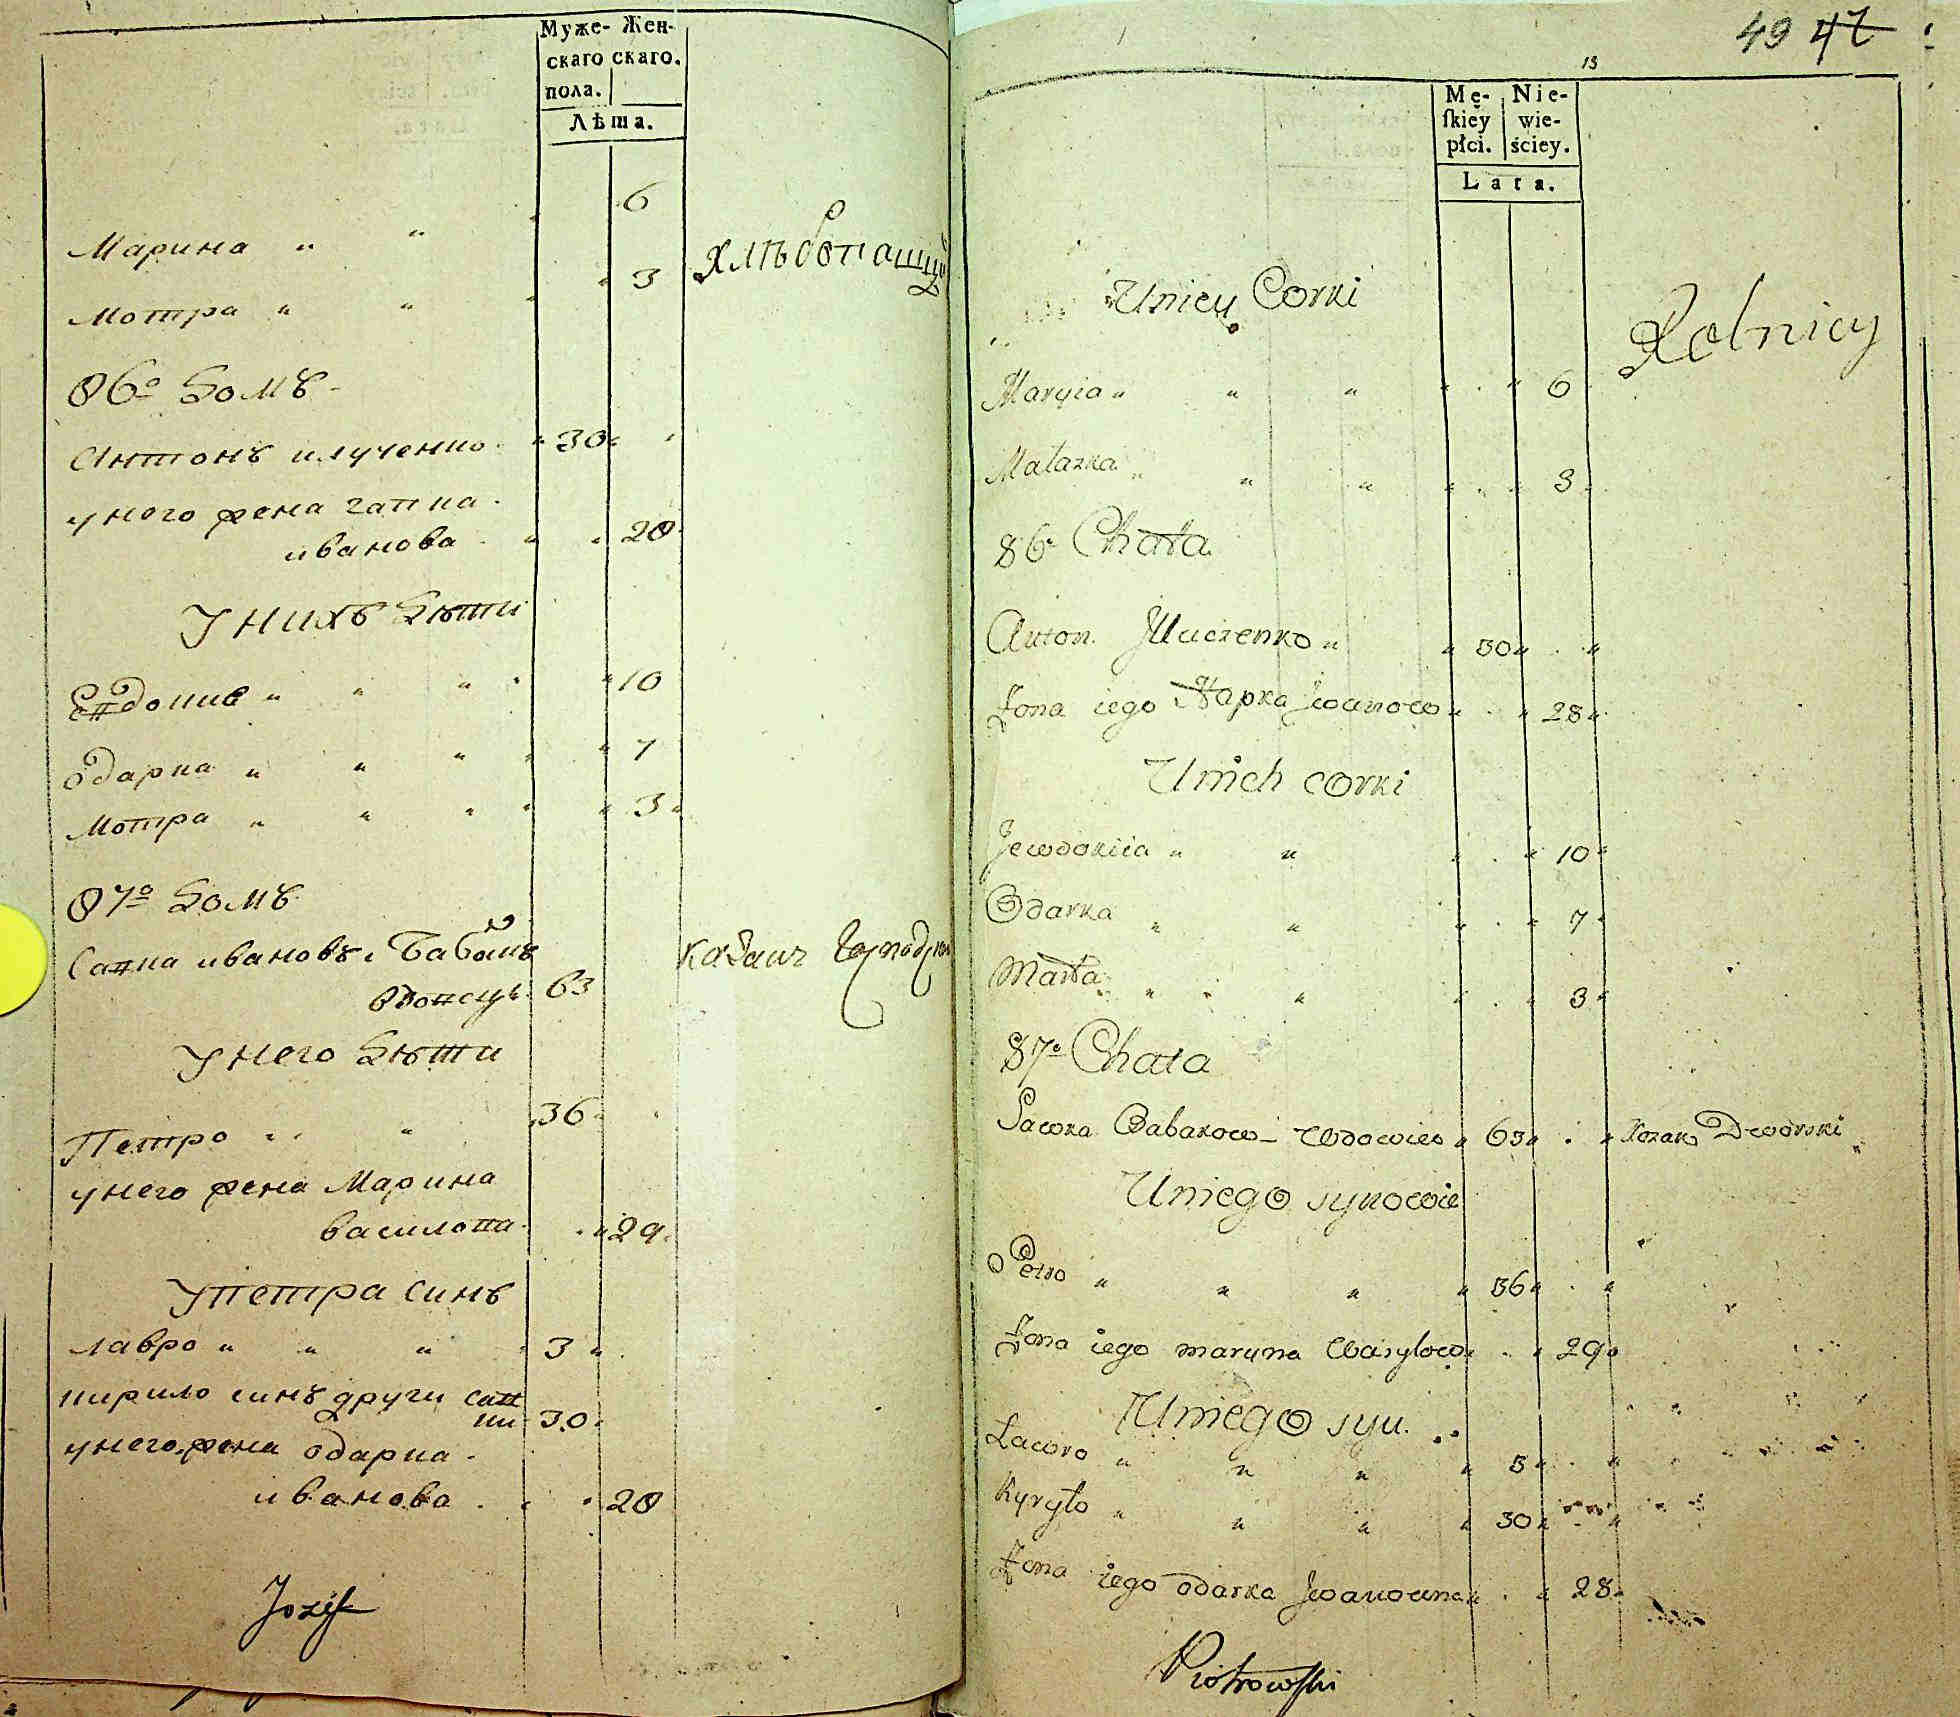 Муже- Жен-
скаго скаго.
пола.
Лѣта.
Марина " " 6
Мотра " " " 3
Хлѣбопашцы
86о Домъ
Антонъ илученко " 30 "
унего жена гапка
иванова " " 28
Унихъ Дѣти
Евдокие " " " " 10
Одарка " " " " 7
Мотра " " " " 3
87о Домъ
Савка ивановъ Бабакъ
вдовецъ 63
козакъ
Унего Дѣти
Петро " " 36
унего жена Марина
василова " 29
Упетра синъ
лавро " " " 3 "
кирило синъ други сав
ки 30
унего жена одарка
иванова " 28
Jozef
49 47
13
Mę- Nie-
ſkiey wie-
płci. ściey.
Lata.
Uniey Corki
Rolnicy
Maryia " " " " " 6
Matazka " " " " " 3
86 Chata
Anton Iluczenko " " 30 " "
Żona iego Hapka Iwanow " " 28 "
Unich corki
Jewdokiia " " " " 10 "
Odarka " " " " 7 "
Marta " " " " 3 "
87 Chata
Sawka Babakow Wdowiec " 63 " " Kozak Dworski
Uniego synowie
Petro " " " " 36 " "
Żona iego maryna Wasylow " " 29 "
Uniego syn
Lawro " " " " 3 " "
Kyryło " " " " 30 " "
Żona iego odarka Iwanowna " " 28
Piotrowſki